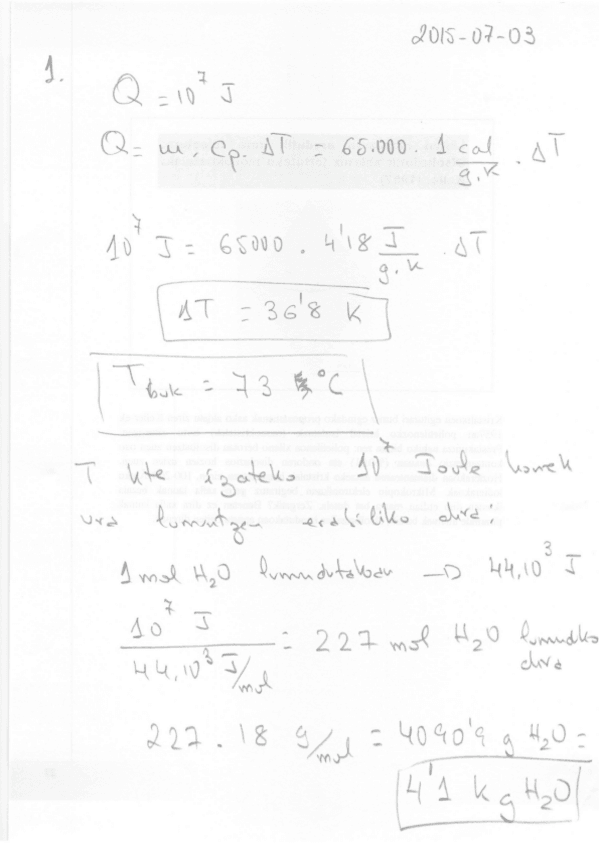 2015-07-03
1.
Q = 10⁷ J
Q = m. Cp. ΔT = 65.000. 1 cal/g.K . ΔT
10⁷ J = 65000 . 4'18 J/g.K . ΔT
ΔT = 36'8 K
T buk = 73 °C
T kte izateko 10⁷ Joule hauek
ura lurruntzen erabiliko dira:
1 mol H₂O lurrundutakoan → 44.10³ J
10⁷ J / 44.10³ J/mol = 227 mol H₂O lurrunduko dira
227 . 18 g/mol = 4090'9 g H₂O =
4'1 kg H₂O